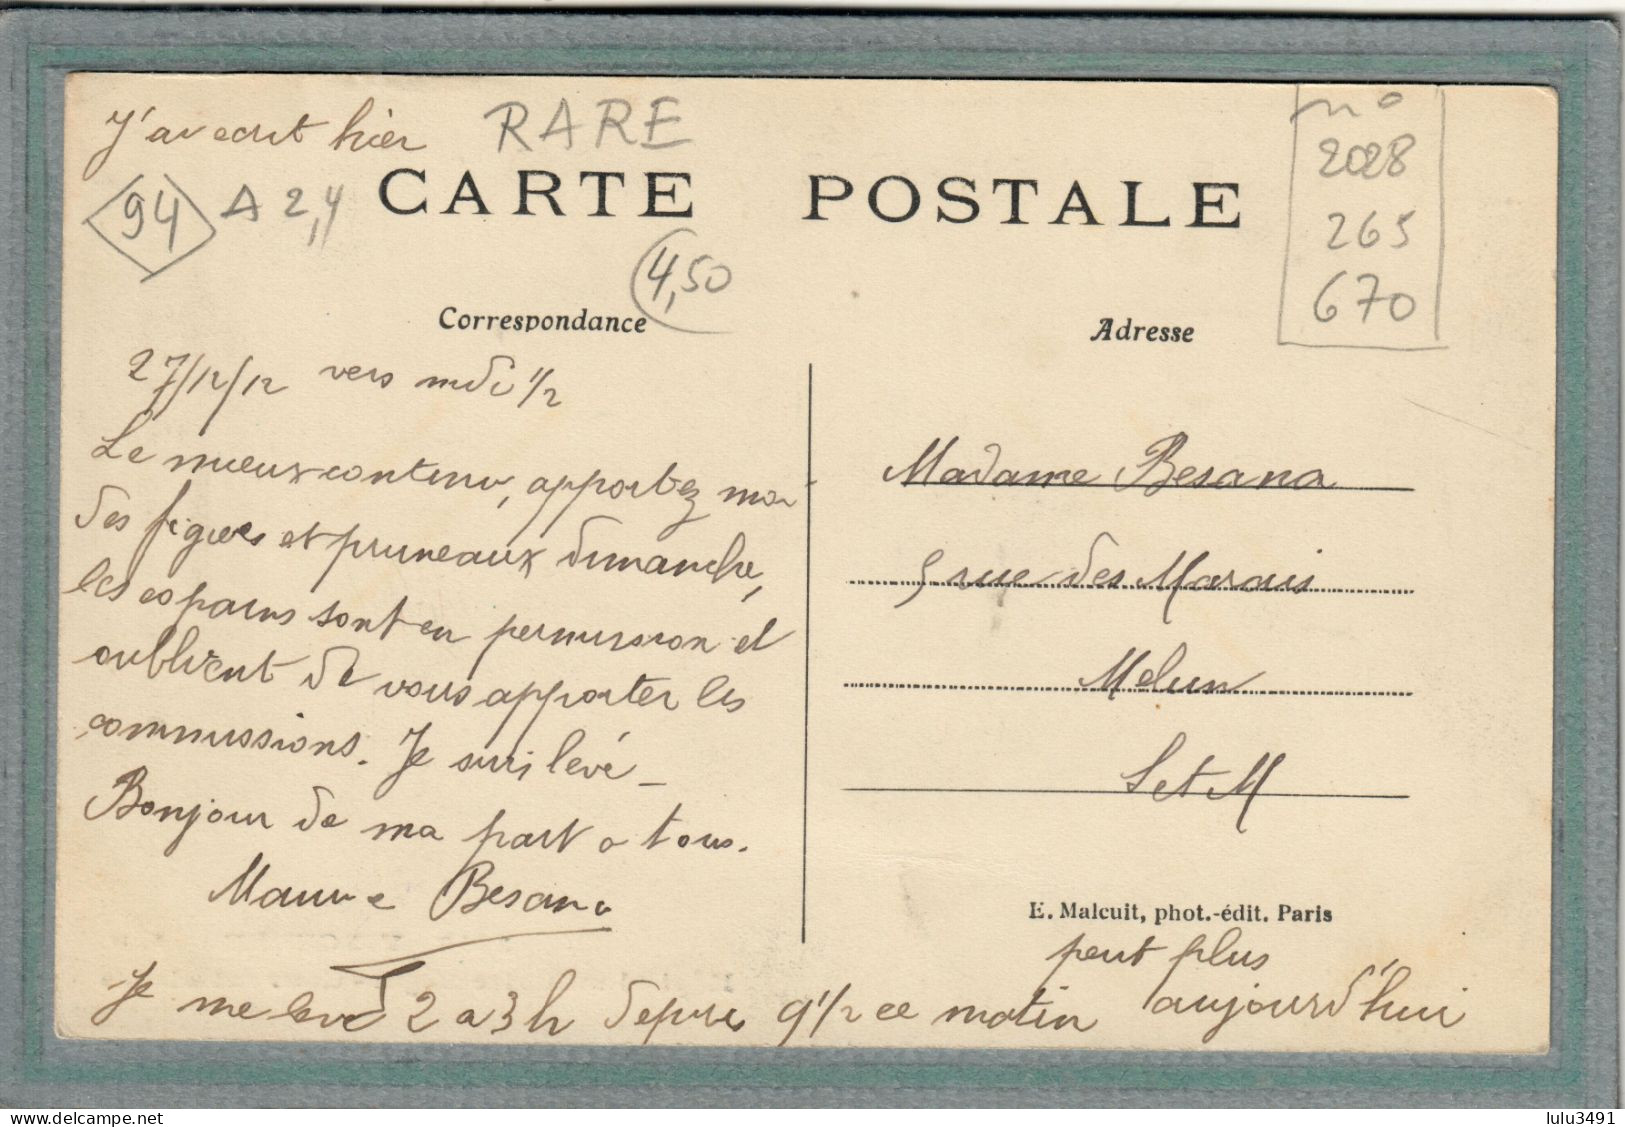 J'ai ecrit hier
RARE
94 A 2,4
CARTE POSTALE
4,50
n°
2028
265
670
Correspondance
Adresse
27/12/12 vers midi 1/2
Le mieux continu, apportez moi
des figues et pruneaux dimanche,
les copains sont en permission et
oublient de vous apporter les
commissions. Je suis levé _
Bonjour de ma part a tous.
Maurice Besana
Je me leve 2 a 3 h depuis 9 1/2 ce matin
peut plus
aujourd'hui
Madame Besana
5 rue des Marais
Melun
S et M
E. Malcuit, phot.-édit. Paris
www.delcampe.net
lulu3491